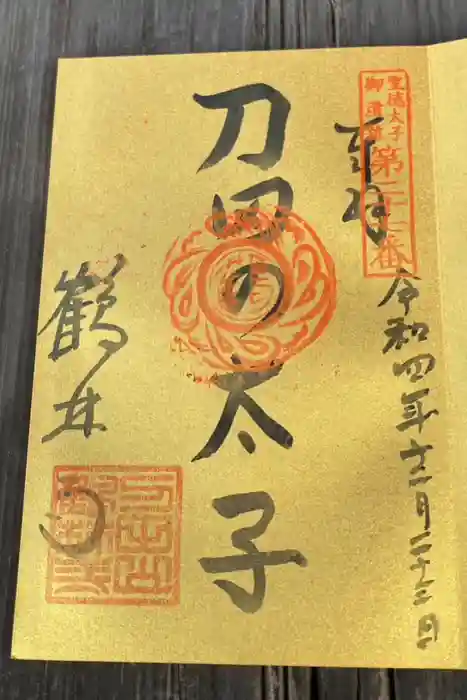 聖徳太子
御遺跡
第二十七番
奉拝
令和四年十二月二十三日
刀田の太子
鶴林